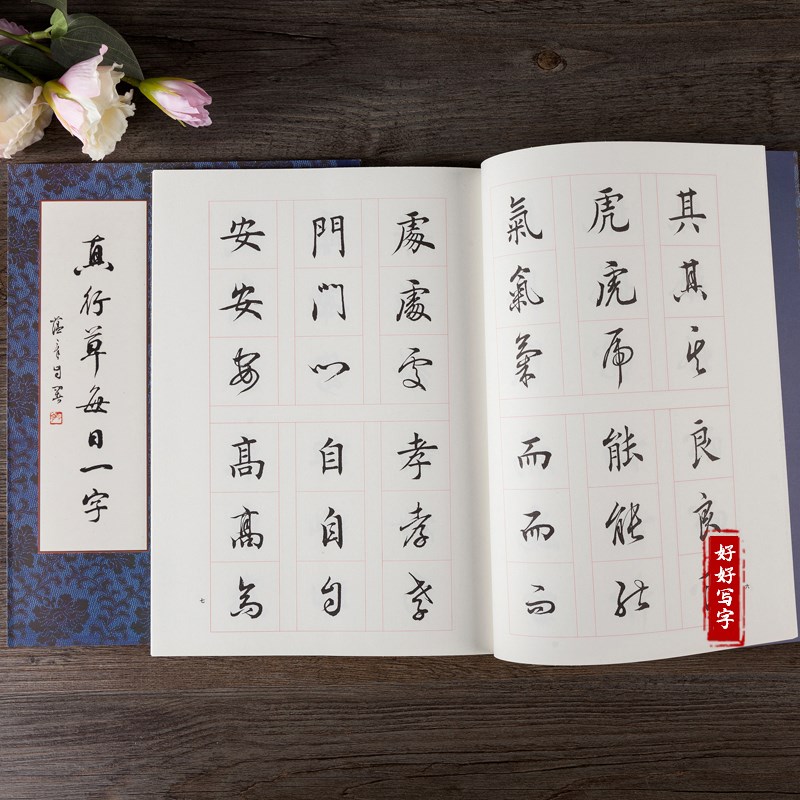 真行草每日一字
其其其
虎虎虎
氣氣氣
良良
能能能
而而而
六
處處處
門門門
安安安
孝孝孝
自自自
高高高
七
好好写字